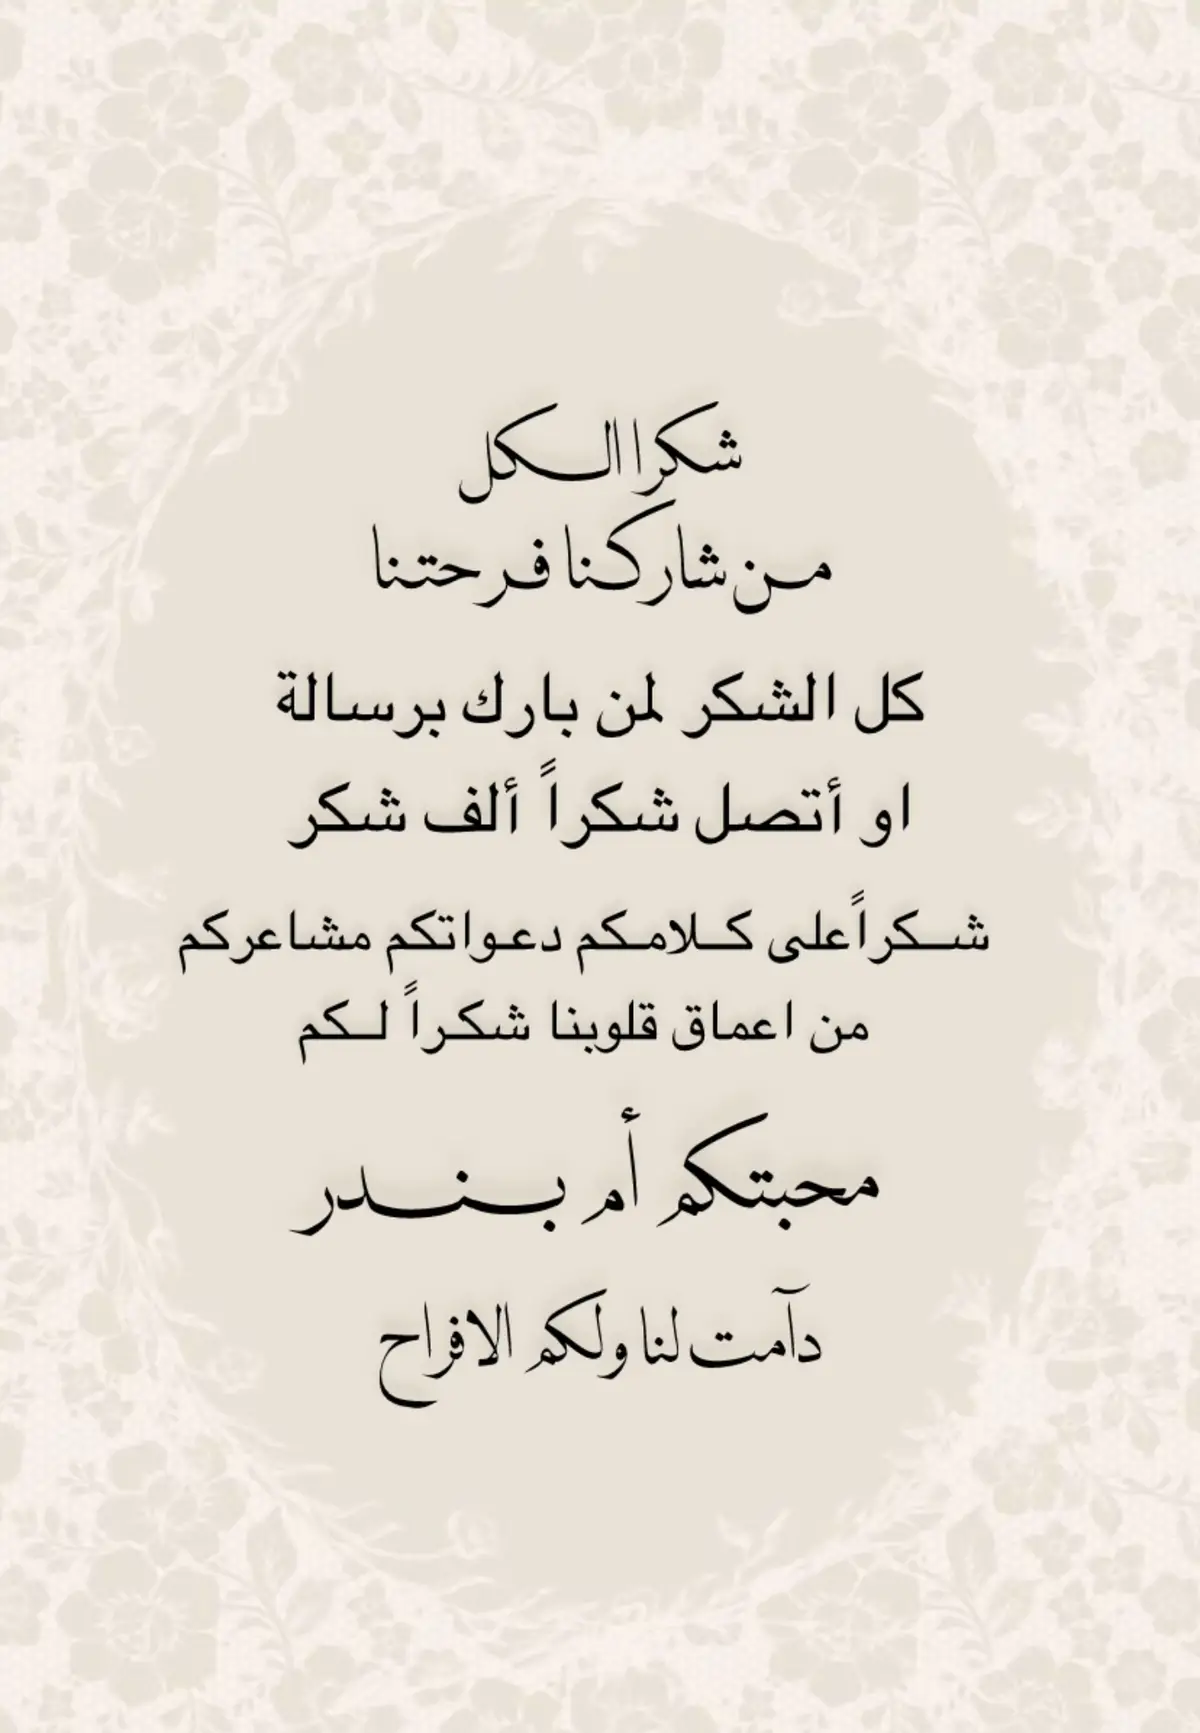 شكرا الكل
من شاركنا فرحتنا
كل الشكر لمن بارك برسالة
او أتصل شكراً ألف شكر
شكراًعلى كلامكم دعواتكم مشاعركم
من اعماق قلوبنا شكراً لكم
محبتكم أم بندر
دآمت لنا ولكم الافراح